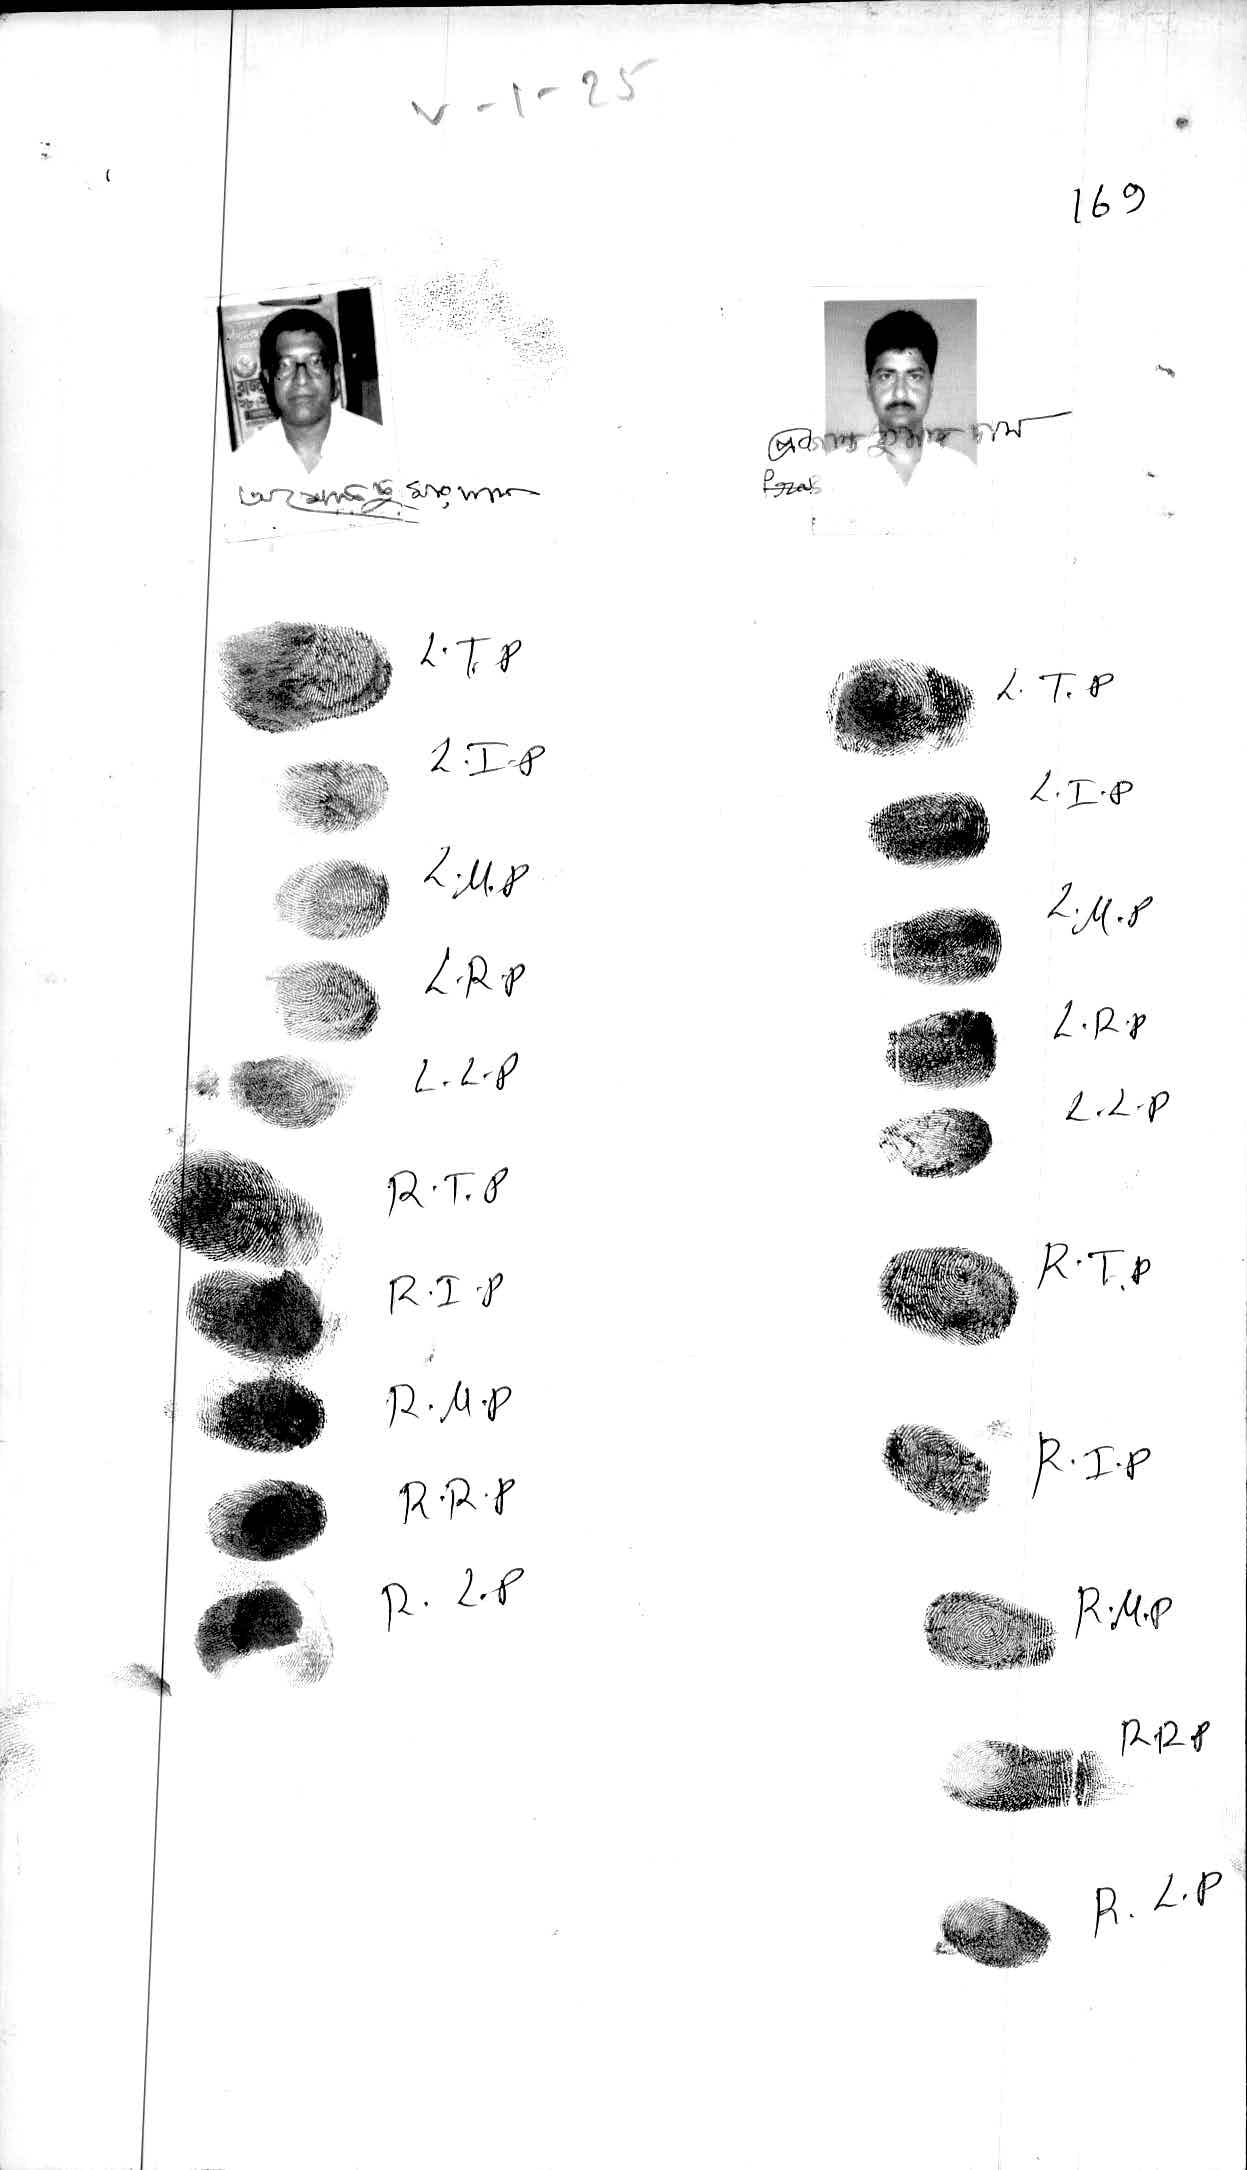 V-1-25
169
প্রকাশ কুমার দাস
L.T.P
L.I.P
L.M.P
L.R.P
L.L.P
R.T.P
R.I.P
R.M.P
R.R.P
R. L.P
L. T. P
L.I.P
L.M.P
L.R.P
L.L.P
R.T.P
R.I.P
R.M.P
R.R.P
R. L.P